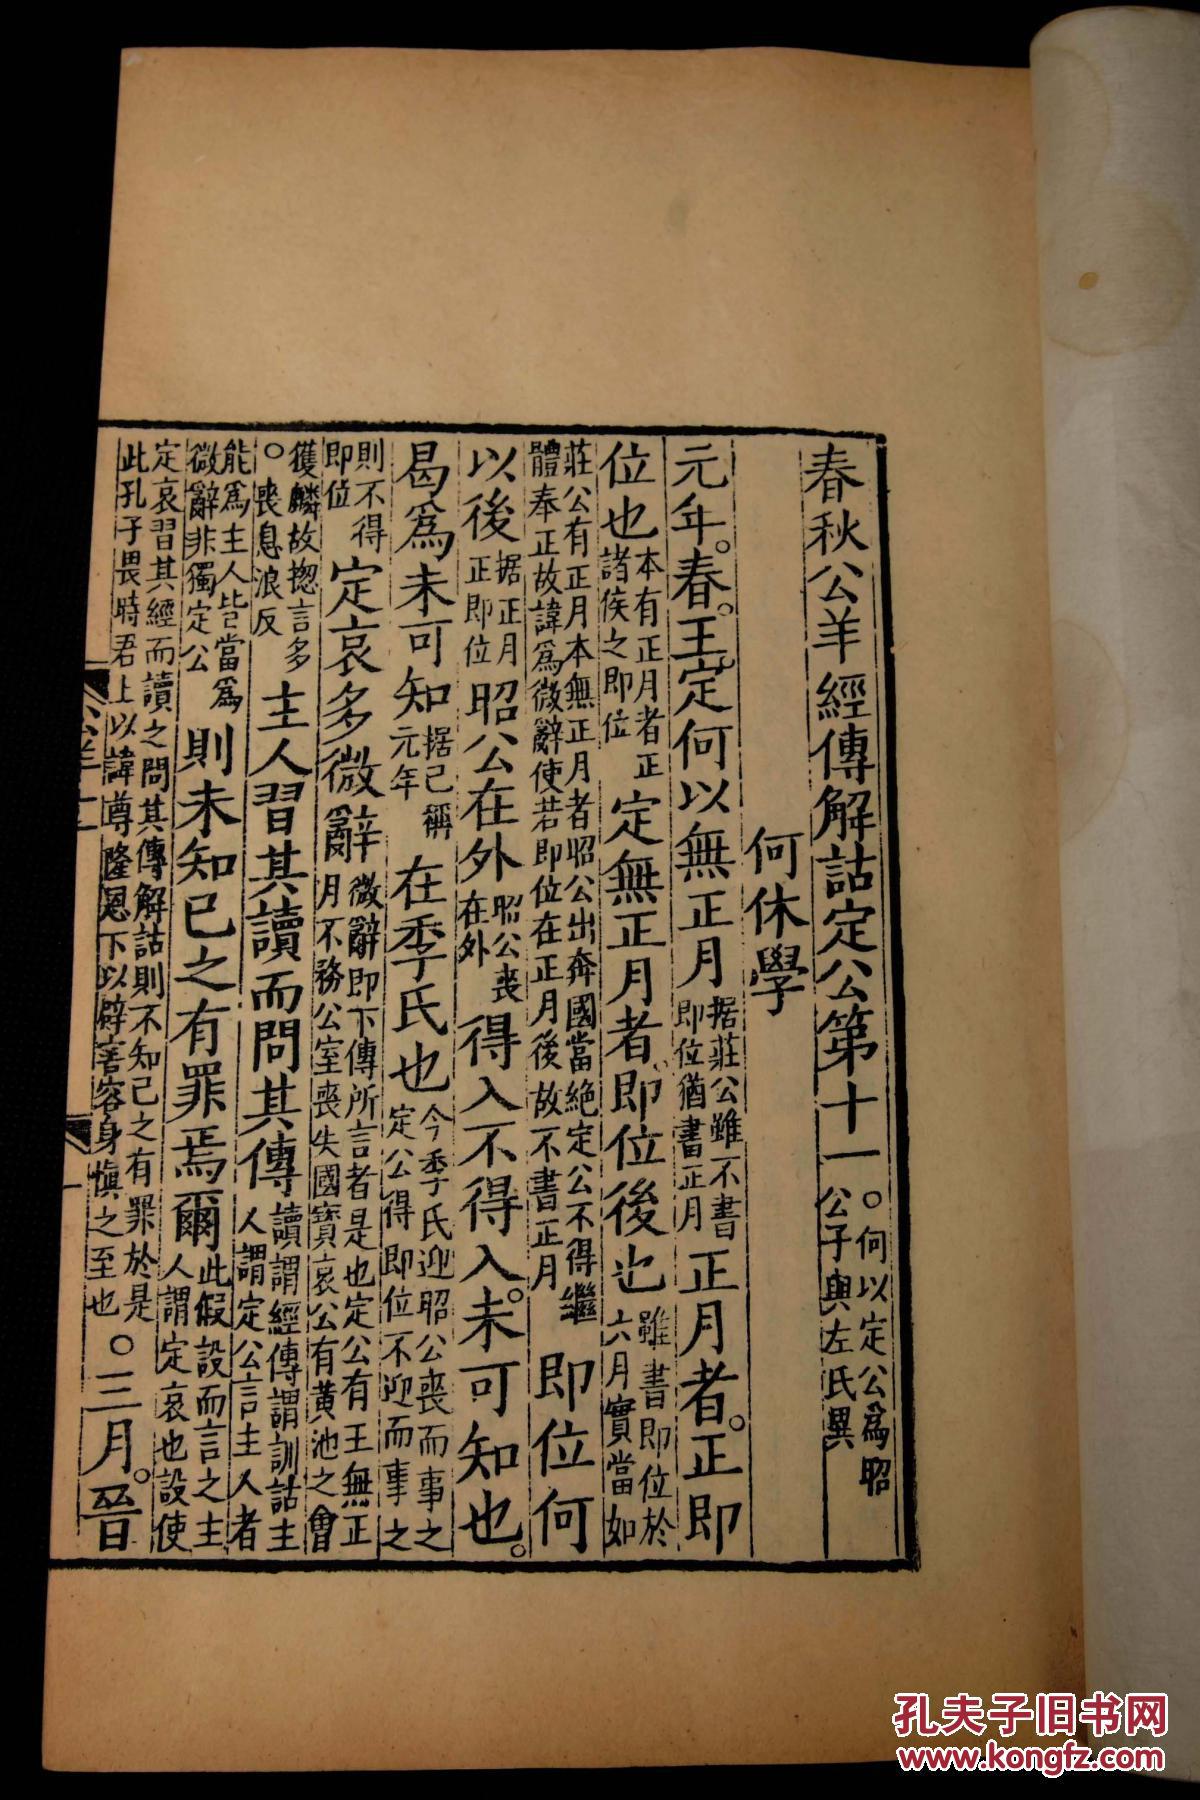 春秋公羊經傳解詁定公第十一〇何以定公爲昭公子與左氏異
何休學
元年春王定何以無正月据莊公雖不書即位猶書正月正月者正即
位也本有正月者正諸侯之即位定無正月者即位後也雖書即位於六月實當如
莊公有正月本無正月者昭公出奔國當絶定公不得繼體奉正故諱爲微辭使若即位在正月後故不書正月即位何
以後据正月正即位昭公在外昭公喪在外得入不得入未可知也
曷爲未可知据已稱元年在季氏也今季氏迎昭公喪而事之定公得即位不迎而事之
則不得即位定哀多微辭微辭即下傳所言者是也定公有王無正月不務公室喪失國寶哀公有黃池之會
獲麟故揔言多〇喪息浪反主人習其讀而問其傳讀謂經傳謂訓詁主人謂定公言主人者
能爲主人皆當爲微辭非獨定公則未知己之有罪焉爾此假設而言之主人謂定哀也設使
定哀習其經而讀之問其傳解詁則不知己之有罪於是此孔子畏時君上以諱尊隆恩下以辟害容身慎之至也〇三月晉
孔夫子旧书网
www.kongfz.com